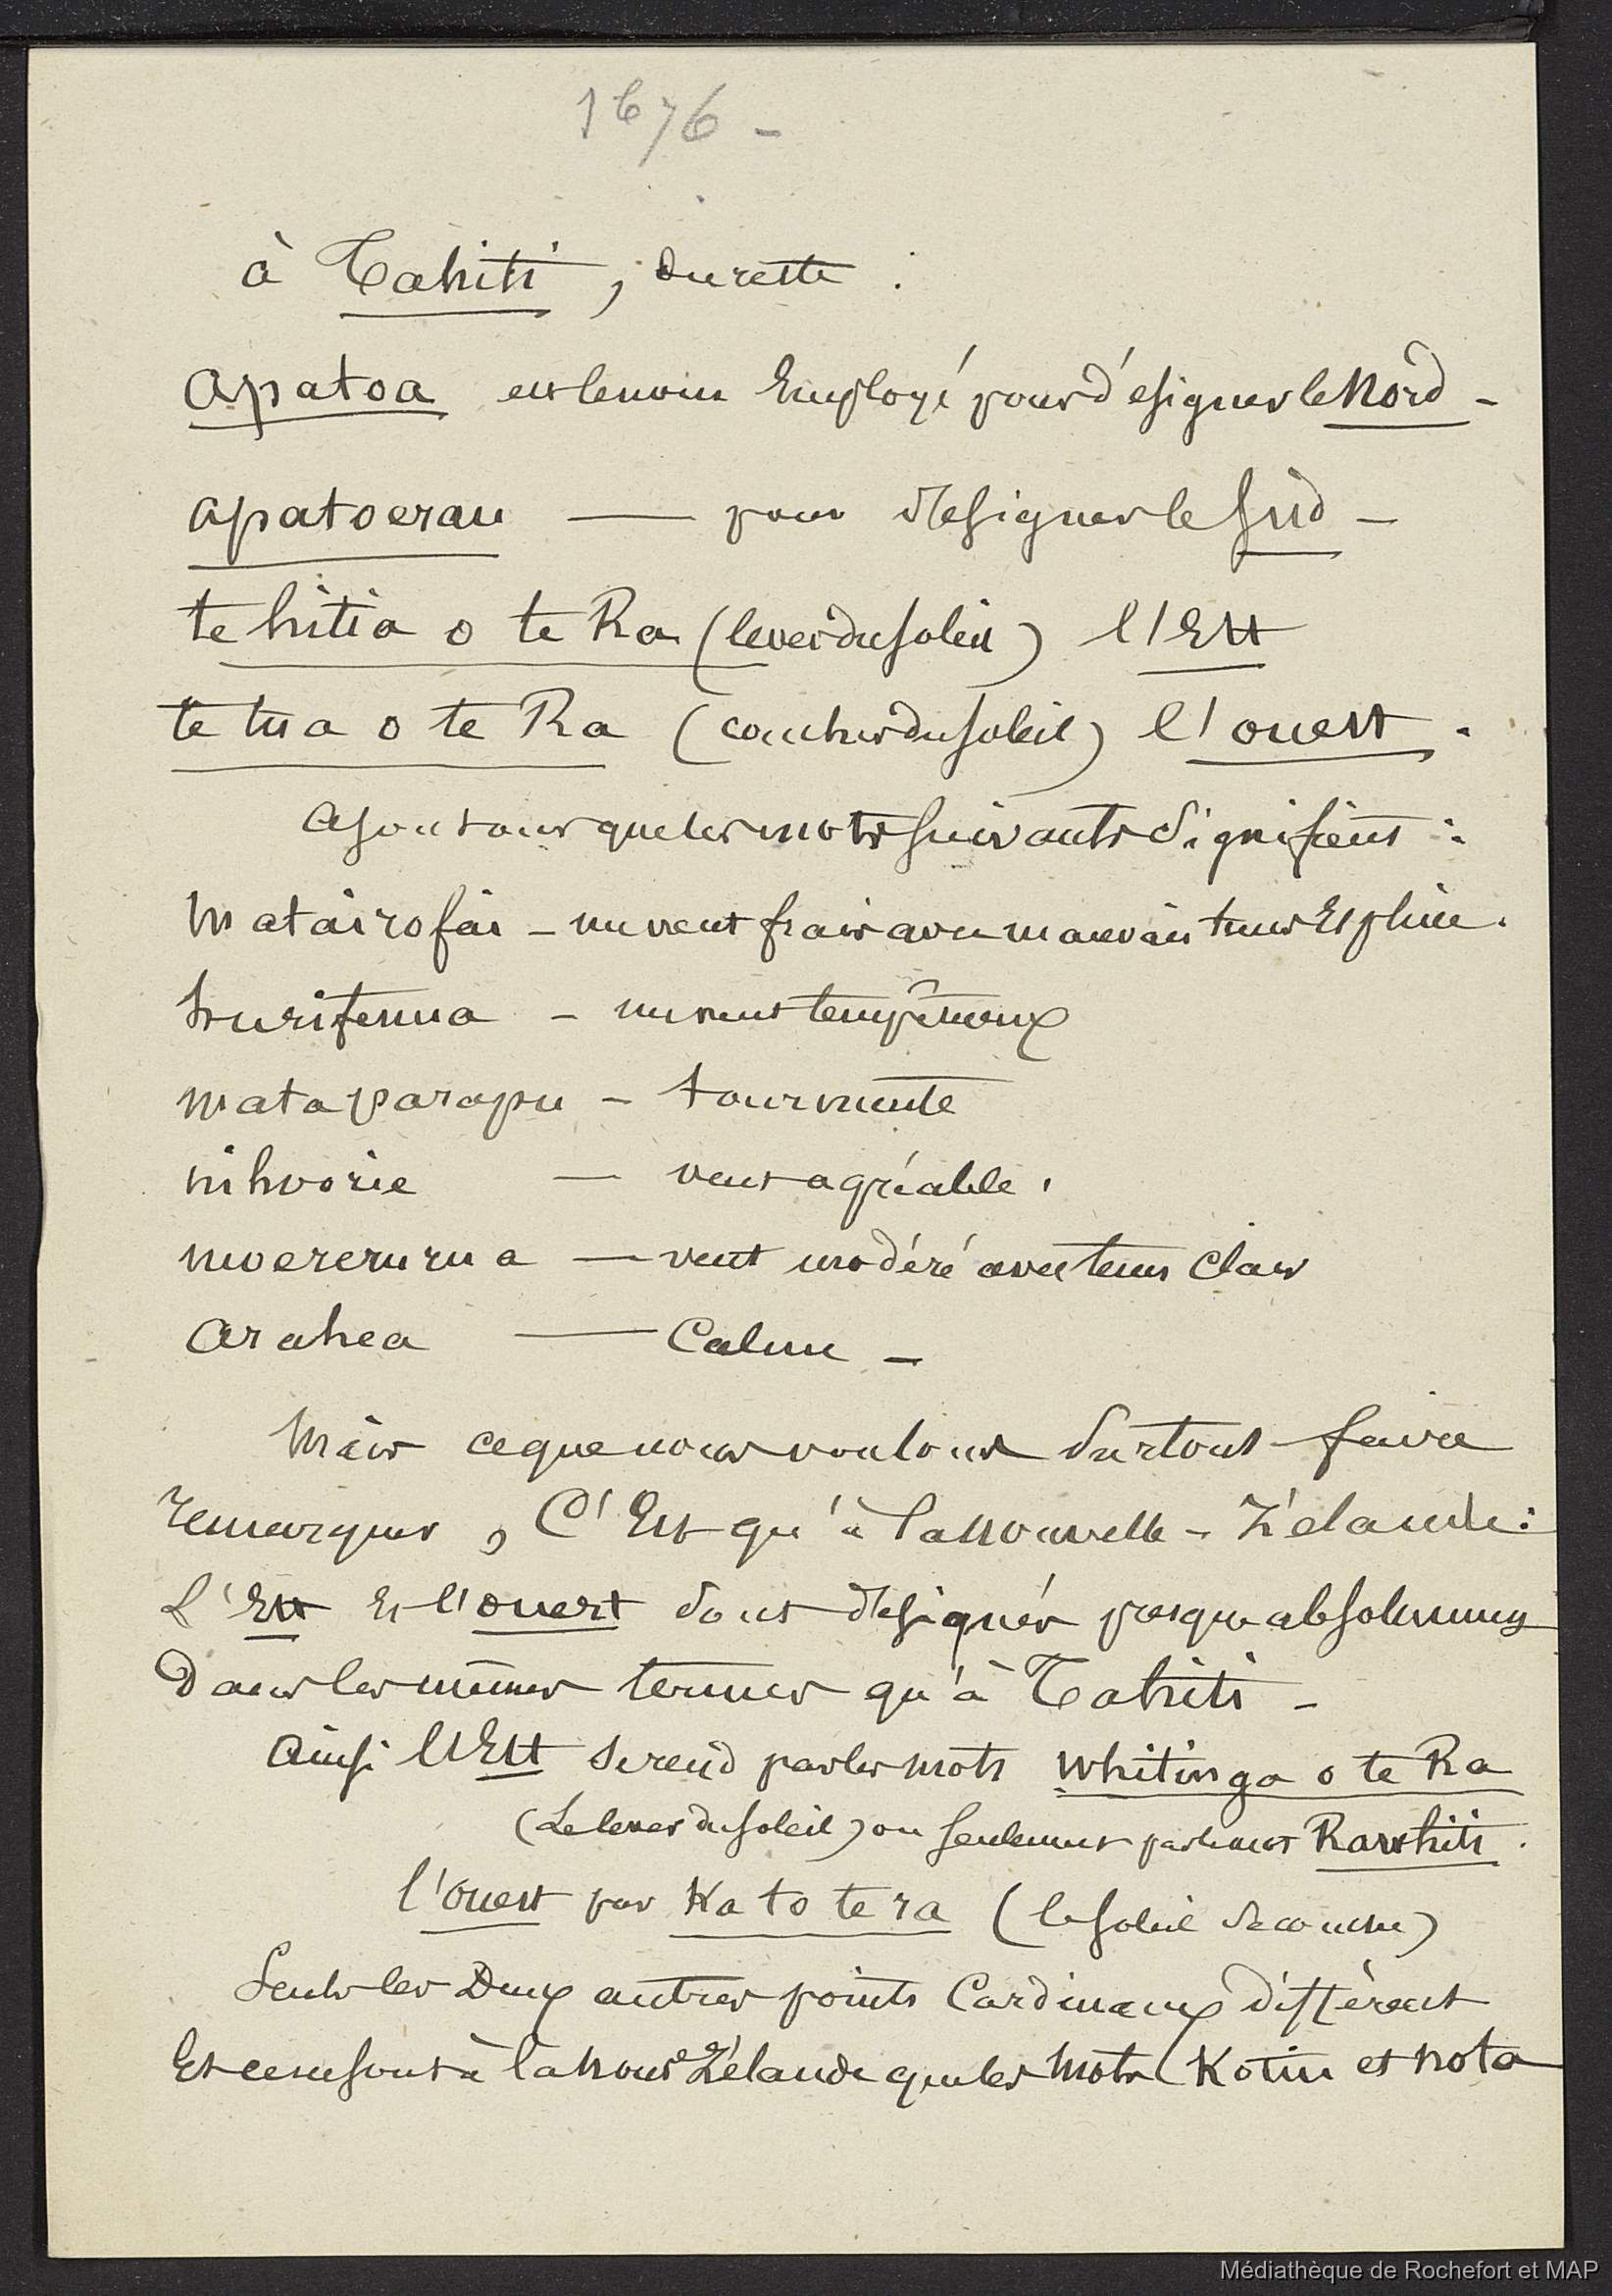 1676 -
à Tahiti, du reste :
apatoa est le nom Employé pour désigner le Nord -
apatoerau — pour désigner le Sud -
te hitia o te Ra (lever du soleil) l'Est
te tua o te Ra (coucher du soleil) l'ouest.
ajoutons que les mots suivants signifient :
matairofai - un vent frais avec mauvais tems Et pluie.
hurifenua - un vent tempêtueux
mataparapu - tourmente
nihvorie — vent agréable.
moereruru a — vent modéré avec tems Clair
Arahea — Calme -
Mais ce que nous voulons surtout faire
remarquer, C'Est qu'à la nouvelle - Zélande :
L'Est Et l'ouest sont désignés presque absolument
Dans les mêmes termes qu'à Tahiti -
Ainsi l'Est se rend par les mots Whitinga o te Ra
(Le lever du soleil) ou seulement par le mot Rawhiti.
l'Ouest par Ka to te ra (le soleil se couche)
Seuls les Deux autres points Cardinaux diffèrent
Et ce ne sont à la Nouv.e Zélande que les mots Kotiu et nota
Médiathèque de Rochefort et MAP